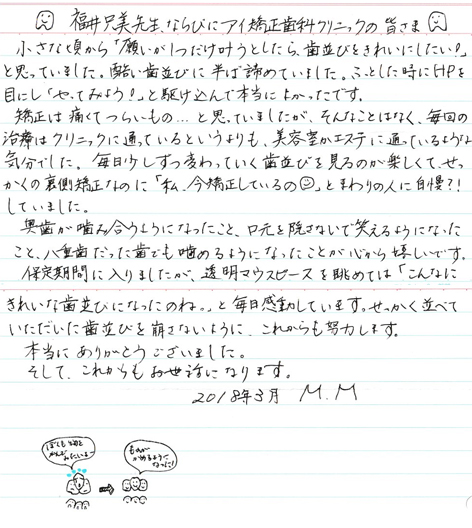 福井兄美先生、ならびにアイ矯正歯科クリニックの皆さま
小さな頃から「願いが1つだけ叶うとしたら、歯並びをきれいにしたい!」
と思っていました。酷い歯並びに半ば諦めていました。ふとした時にHPを
目にし「やってみよう!」と駆け込んで本当によかったです。
矯正は痛くてつらいもの…と思っていましたが、そんなことはなく、毎回の
治療はクリニックに通っているというよりも、美容室かエステに通っているような
気分でした。毎日少しずつ変わっていく歯並びを見るのが楽しくて、せっ
かくの裏側矯正なのに「私、今矯正しているの」とまわりの人に自慢?!
していました。
奥歯が噛み合うようになったこと、口元を隠さないで笑えるようになった
こと、八重歯だった歯でも噛めるようになったことが心から嬉しいです。
保定期間に入りましたが、透明マウスピースを眺めては「こんなに
きれいな歯並びになったのね。」と毎日感動しています。せっかく並べて
いただいた歯並びを崩さないように、これからも努力します。
本当にありがとうございました。
そして、これからもお世話になります。
2018年3月 M.M
ぼくも
かみたいよー
ものが
かめるように
なった!